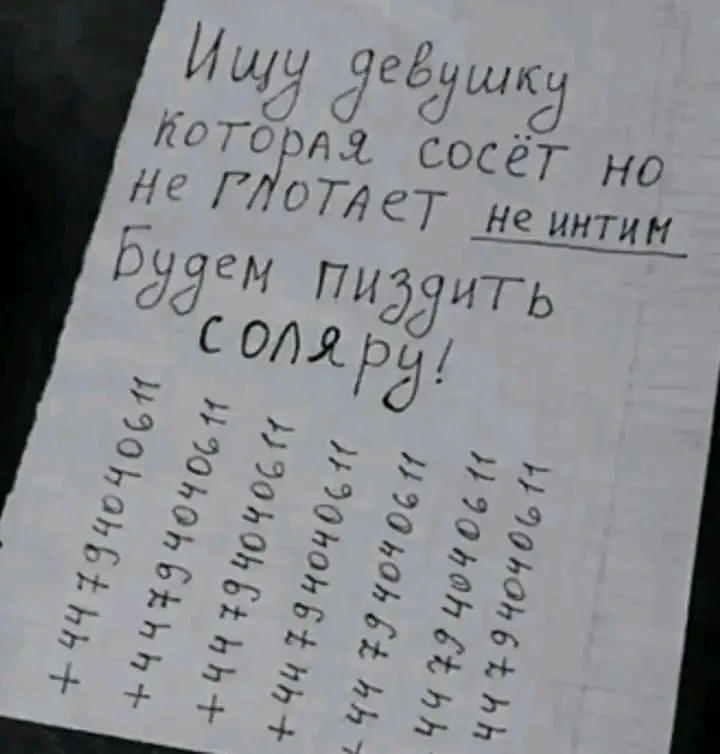 Ищу девушку
которая сосёт но
не глотает не интим
Будем пиздить
соляру!
+44794040611
+44794040611
+44794040611
+44794040611
+44794040611
44794040611
44794040611